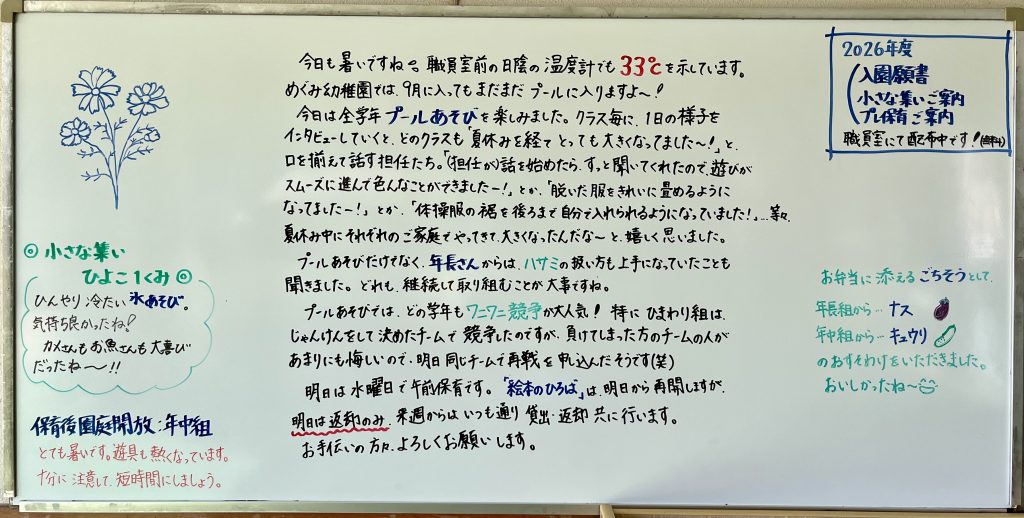 今日も暑いですね〜。職員室前の日陰の温度計でも33℃を示しています。
めぐみ幼稚園では、9月に入ってもまだまだプールに入りますよ〜！
今日は全学年プールあそびを楽しみました。クラス毎に、1日の様子を
インタビューしていくと、どのクラスも「夏休みを経てとっても大きくなってました〜！」と、
口を揃えて話す担任たち。「（担任が）話を始めたら、すっと聞いてくれたので、遊びが
スムーズに進んで色んなことができましたー！」とか、「脱いだ服をきれいに畳めるように
なってましたー！」とか、「体操服の裾を後ろまで自分で入れられるようになっていました！」…等々、
夏休み中にそれぞれのご家庭でやってきて、大きくなったんだな〜と、嬉しく思いました。
プールあそびだけでなく、年長さんからは、ハサミの扱い方も上手になっていたことも
聞きました。どれも、継続して取り組むことが大事ですね。
プールあそびでは、どの学年もワニワニ競争が大人気！特にひまわり組は、
じゃんけんをして決めたチームで競争したのですが、負けてしまった方のチームの人が
あまりにも悔しいので、明日同じチームで再戦を申込んだそうです（笑）
明日は水曜日で午前保育です。「絵本のひろば」は、明日から再開しますが、
明日は返却のみ、来週からはいつも通り貸出・返却共に行います。
お手伝いの方々、よろしくお願いします。
◎小さな集い
ひよこ1くみ◎
ひんやり冷たい氷あそび。
気持ち良かったね！
カメさんもお魚さんも大喜び
だったね〜!!
保育後園庭開放：年中組
とても暑いです。遊具も熱くなっています。
十分に注意して、短時間にしましょう。
2026年度
入園願書
小さな集いご案内
プレ保育ご案内
職員室にて配布中です！(無料)
お弁当に添えるごちそうとして、
年長組から…ナス
年中組から…キュウリ
のおすそわけをいただきました。
おいしかったね〜